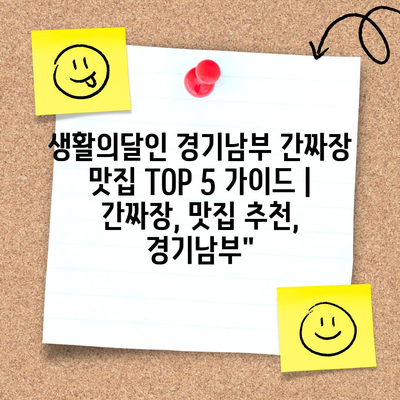 생활의달인 경기남부 간짜장
맛집 TOP 5 가이드 |
간짜장, 맛집 추천,
경기남부"